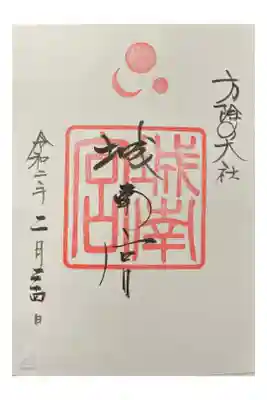 方除の大社
城南宮
城南宮印
令和二年二月 日